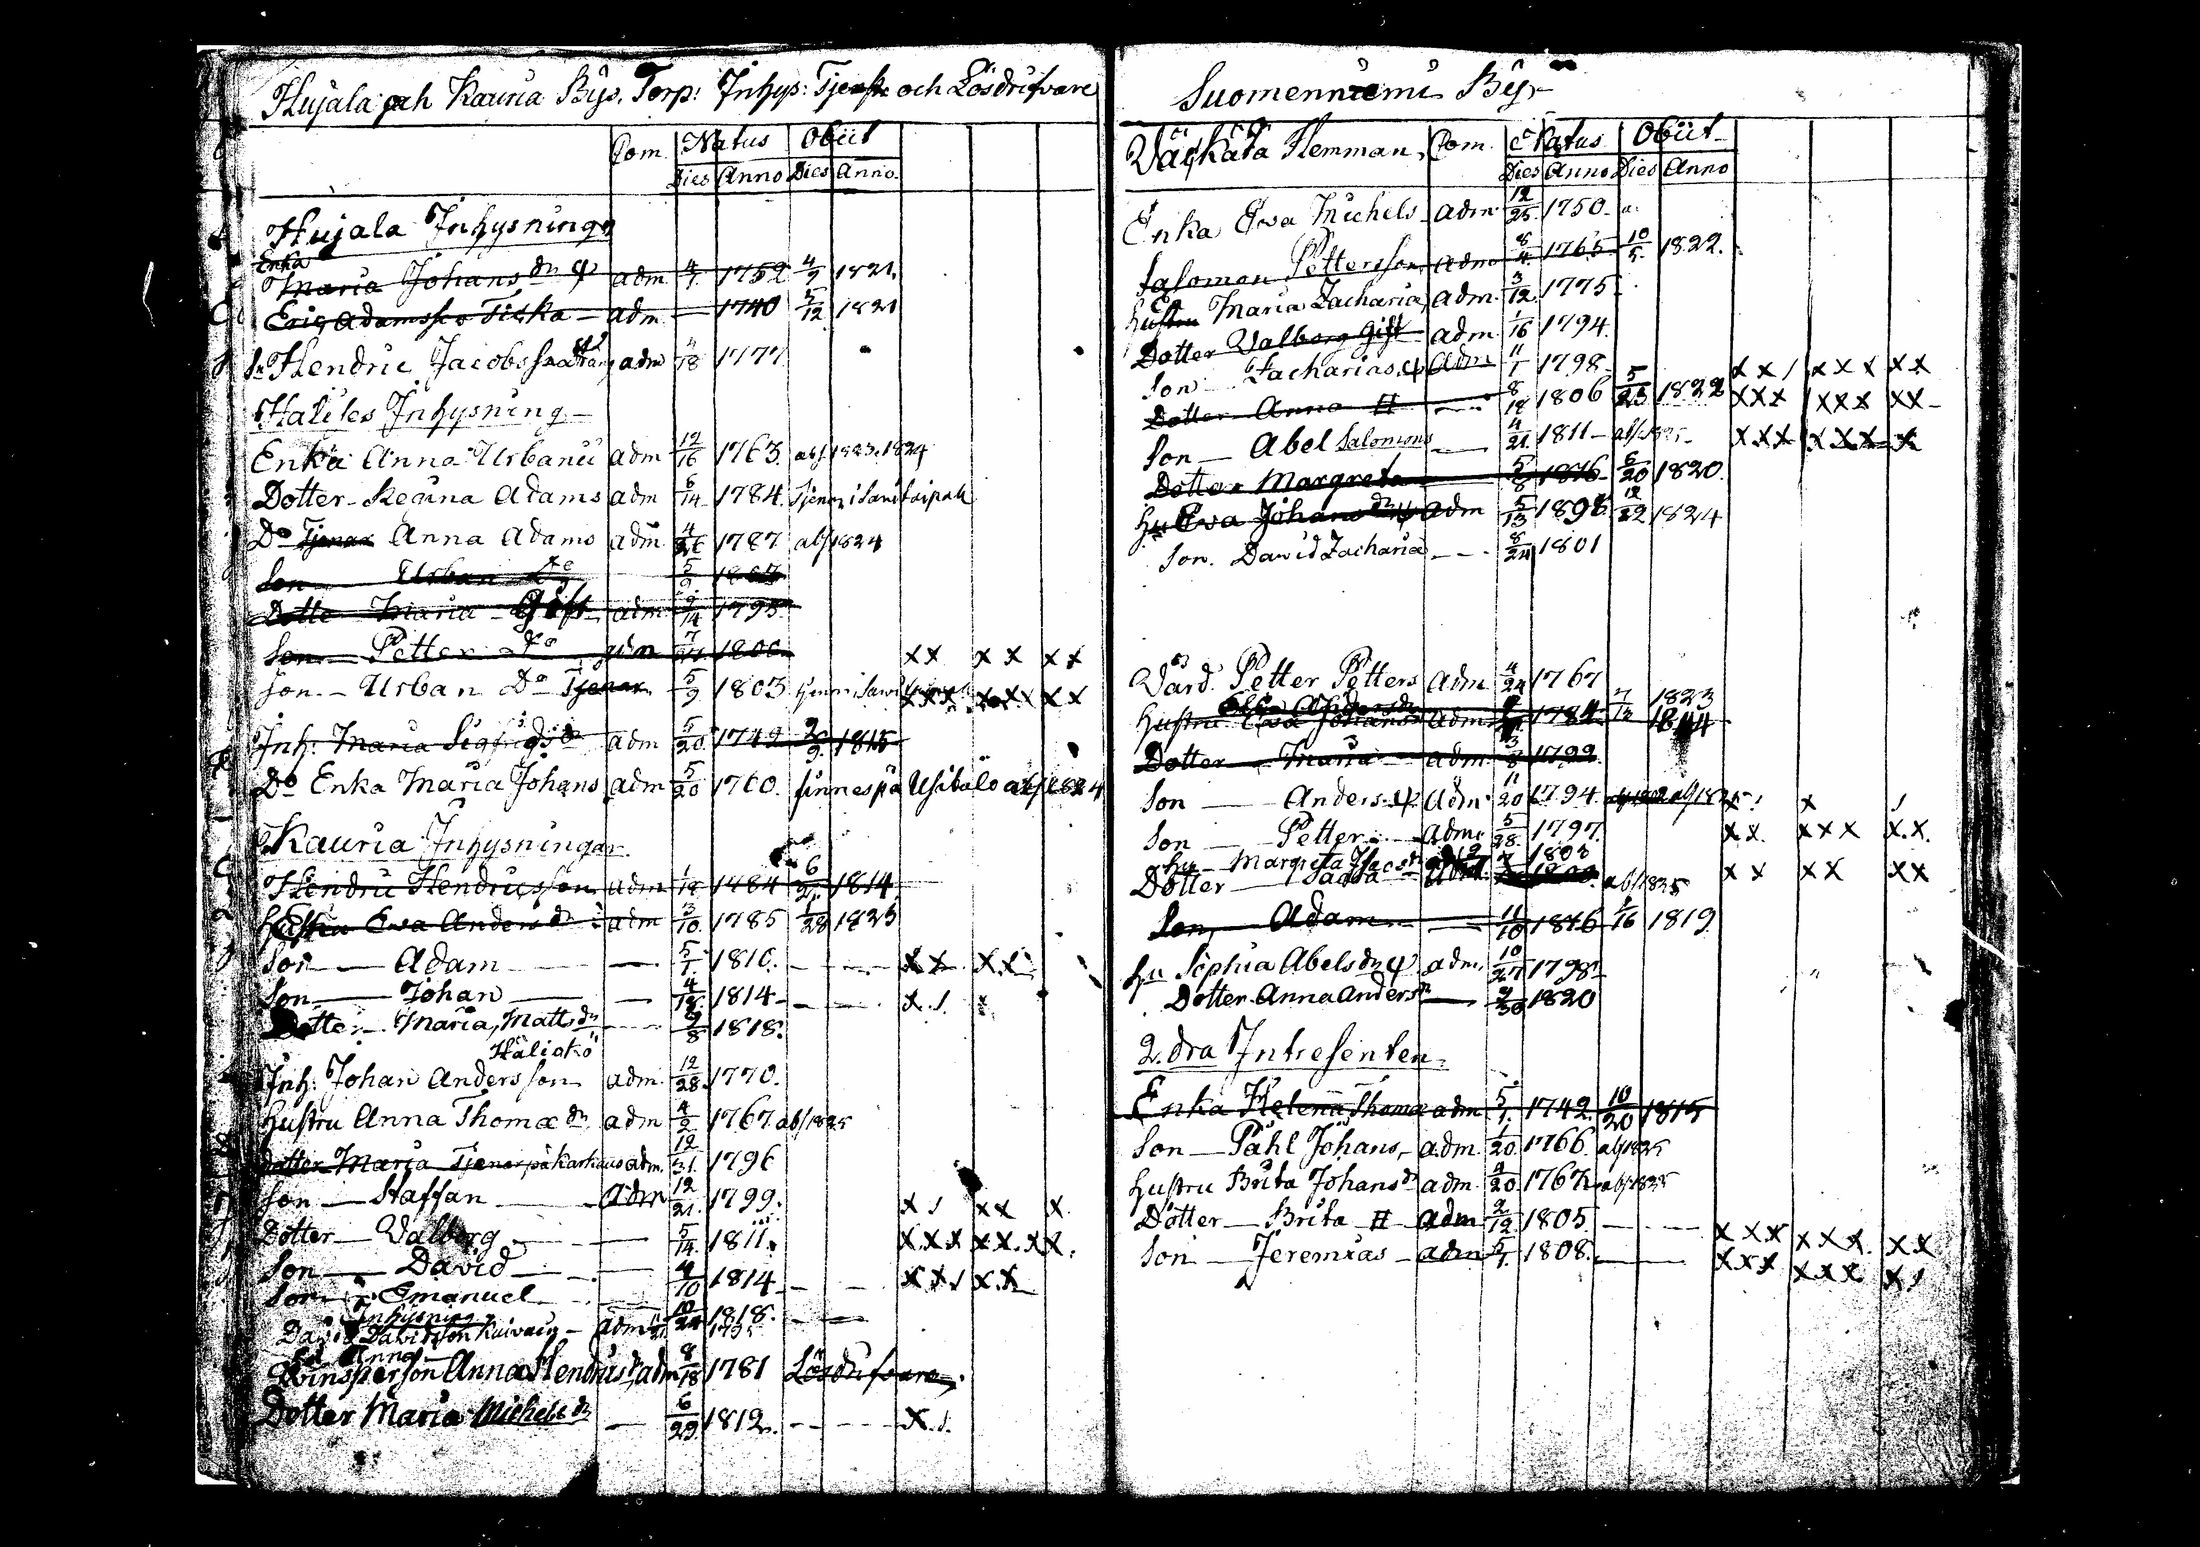 Hujala och Kauria Bys. Torp: Inhys: Tjenste och Lösdrifvare
Com. Natus Obiit
Dies Anno Dies Anno
Hujala Inhysningar
Enka
Maria Johans dr adm 4/7 1752 4/9 1821
Eric Adamsson Tiska adm 1740 5/12 1821
Hendric Jacobsson adm 11/18 1777
Haliles Inhysning
Enka Anna Urbanii adm 12/16 1763 abs 1823. 1824
Dotter Regina Adams adm 6/14 1784 Tjenar i Savitaipale
Do Tjenar Anna Adams adm 4/26 1787 abs 1824
Son Urban Do 5/9 1803
Dotter Maria Gift adm 9/14 1795
Son Petter Do adm 7/14 1800 xx xx xx
Son Urban Do Tjenar 5/9 1803 xxx xxxx xx
Inh: Maria Sigfrids dr adm 5/20 1749 2/9 1815
Do Enka Maria Johans adm 5/20 1760 finnes på abs 1824
Kauria Inhysningar
Hendric Hendricsson adm 1/18 1484 6/21 1814
Hustru Ewa Anders dr adm 3/10 1785 1/28 1823
Son Adam 5/1 1810 xx xx
Son Johan 4/18 1814 x 1
Dotter Maria Matts dr 9/8 1818
Häliskö
Inh: Johan Andersson adm 12/28 1770
Hustru Anna Thomæ dr adm 4/2 1767 abs 1825
Dotter Maria Tjenar på Karhaus adm 12/31 1796
Son Staffan adm 12/21 1799 x 1 xx x
Dotter Valborg 5/14 1811 xxx xx xx
Son David 4/10 1814 xx1 xx
Son Emanuel 10/24 1818
Inhysning
David Davidsson Kuivain adm 1795
Anna
Qvinsperson Anna Hendrics dr adm 8/18 1781 Lösdrifvare
Dotter Maria Michels dr 6/29 1812 x 1
Suomenniemi By
Väykätä Hemman Com. Natus Obiit
Dies Anno Dies Anno
Enka Ewa Michels adm 12/25 1750
Salomon Pettersson adm 8/4 1765 10/5 1822
Hustru Maria Zachariæ adm 3/12 1775
Dotter Valborg Gift adm 1/16 1794
Son Zacharias adm 11/1 1798 xx1 xxx xx
Dotter Anna 8/19 1806 5/23 1822 xxx xxx xx
Son Abel Salomons 4/21 1811 abs 1825 xxx xxx x
Dotter Margreta 5/8 1816 6/20 1820
Hu Ewa Johans dr adm 5/13 1798 12/22 1824
Son David Zachariæ 8/24 1801
Värd Petter Petters adm 4/24 1767
Anders dr 1823
Hustru Ewa Johans adm 1784 7/12 1814
Dotter Maria adm 3/8 1792
Son Anders adm 11/20 1794 abs 1825 1 x 1
Son Petter adm 5/28 1797 xx xxx xx
Hu Margreta 1802
Dotter adm 1800 abs 1825 xx xx xx
Son Adam 11/10 1816 2/16 1819
Hu Sophia Abels dr adm 10/27 1798
Dotter Anna Anders dr 9/30 1820
2. dra Intresenten
Enka Helena Thomæ adm 5/1 1742 10/20 1815
Son Påhl Johans adm 1/20 1766 abs 1825
Hustru Brita Johans dr adm 4/20 1767 abs 1825
Dotter Brita adm 2/12 1805 xxx xxx xx
Son Jeremias adm 5/1 1808 xxx xxx x1